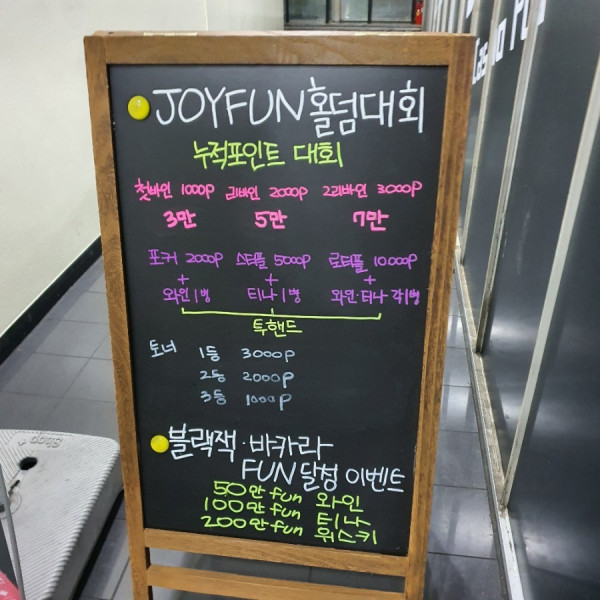 JOYFUN홀덤대회
누적포인트 대회
첫바인 1000P 리바인 2000P 2리바인 3000P
3만 5만 7만
포커 2000P 스티플 5000P 로티플 10000P
+ + +
와인1병 티나1병 와인·티나 각1병
투핸드
토너 1등 3000P
2등 2000P
3등 1000P
블랙잭·바카라
FUN달성 이벤트
50만fun 와인
100만fun 티나
200만fun 위스키